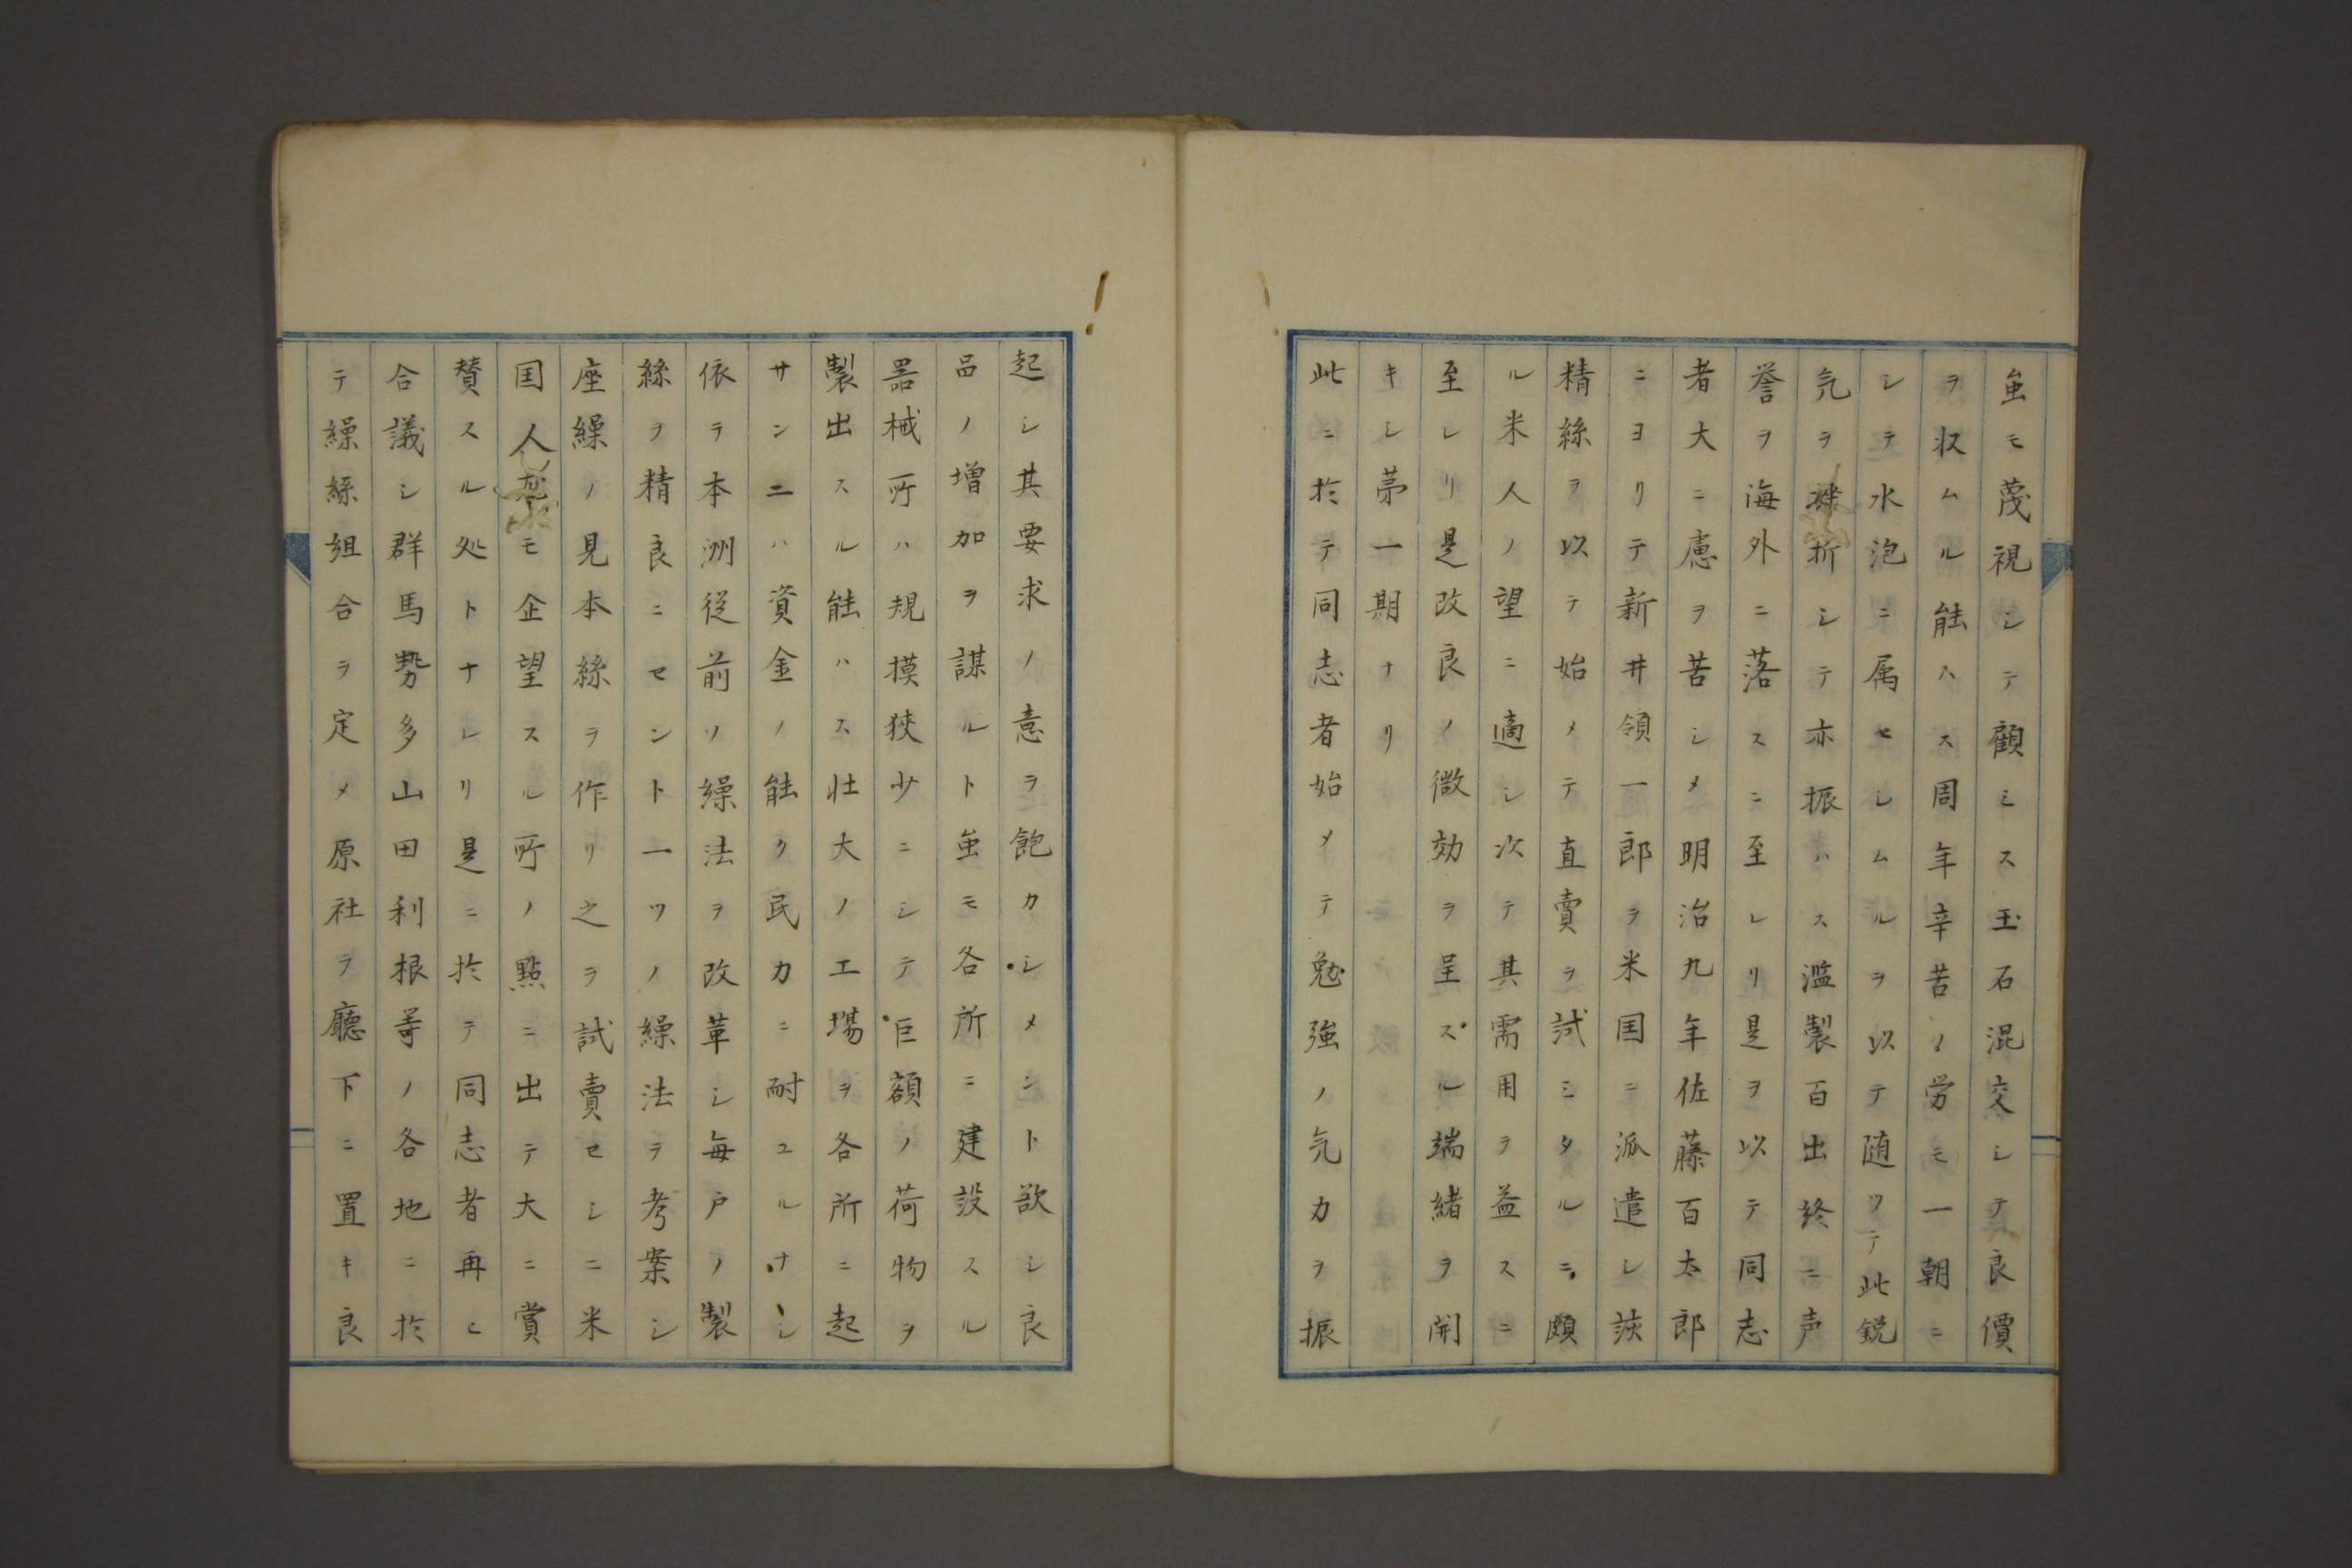 虽モ蔑視シテ顧ミス玉石混交シテ良價
ヲ收ムル能ハス周年辛苦ノ労モ一朝ニ
シテ水泡ニ属セシムルヲ以テ随ツテ此鋭
気ヲ挫折シテ亦振ハス濫製百出終ニ声
誉ヲ海外ニ落スニ至レリ是ヲ以テ同志
者大ニ慮ヲ苦シメ明治九年佐藤百太郎
ニヨリテ新井領一郎ヲ米国ニ派遣シ該
精絲ヲ以テ始メテ直賣ヲ試ミタルニ頗
ル米人ノ望ニ適シ次テ其需用ヲ益スニ
至レリ是改良ノ微効ヲ呈スル端緒ヲ開
キシ茅一期ナリ
此ニ於テ同志者始メテ勉強ノ気力ヲ振
起シ其要求ノ意ヲ飽カシメント欲シ良
品ノ増加ヲ謀ルト虽モ各所ニ建設スル
器械所ハ規摸狭少ニシテ巨額ノ荷物ヲ
製出スル能ハス壮大ノ工場ヲ各所ニ起
サンニハ資金ノ能ク民力ニ耐ユルナシ
依テ本洲従前ノ繰法ヲ改革シ毎戸ノ製
絲ヲ精良ニセント一ツノ繰法ヲ考案シ
座繰ノ見本絲ヲ作リ之ヲ試賣セシニ米
国人モ企望スル所ノ點ニ出テ大ニ賞
賛スル処トナレリ是ニ於テ同志者再ヒ
合議シ群馬勢多山田利根等ノ各地ニ於
テ繰絲組合ヲ定メ原社ヲ廳下ニ置キ良